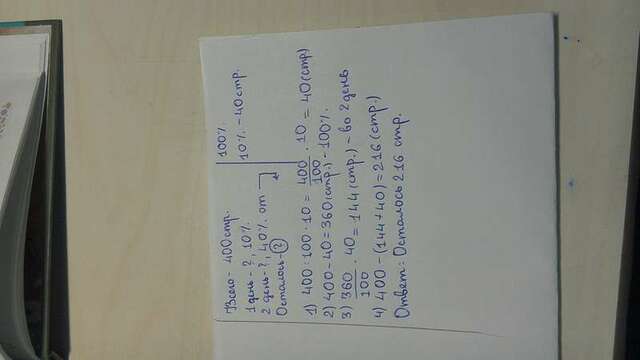 Всего - 400 стр.
1 день - ?, 10%
2 день - ?, 40% от
Осталось - ?
100%
10% - 40 стр.
1) 400 : 100 · 10 = 400/100 · 10 = 40 (стр)
2) 400 - 40 = 360 (стр.) - 100%.
3) 360/100 · 40 = 144 (стр.) - во 2 день
4) 400 - (144 + 40) = 216 (стр.)
Ответ: Осталось 216 стр.